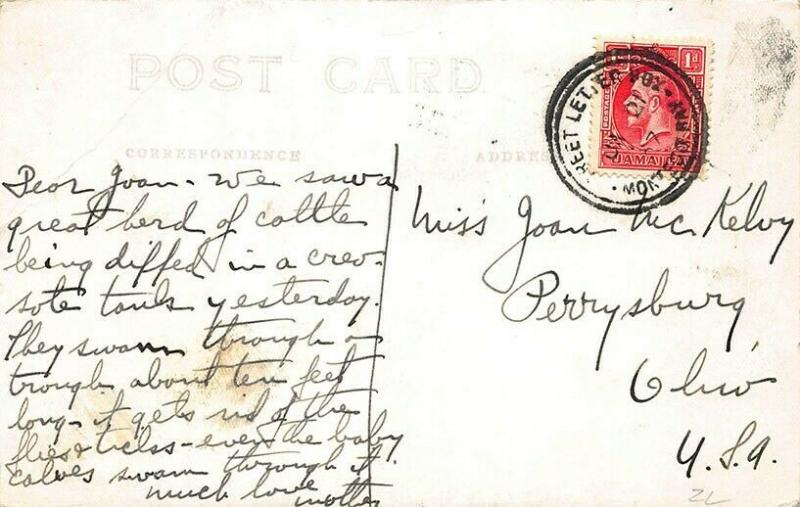 POST CARD
CORRESPONDENCE
ADDRESS
1d
POSTAGE
JAMAICA
STREET LETTER BOX
MONTEGO BAY
Dear Joan - We saw a
great herd of cattle
being diffed in a creo-
sote tank yesterday.
They swam through a
trough about ten feet
long - it gets rid of the
flies & ticks - even the baby
calves swam through it.
much love
mother
Miss Joan McKelvy
Perrysburg,
Ohio
U.S.A.
ZL